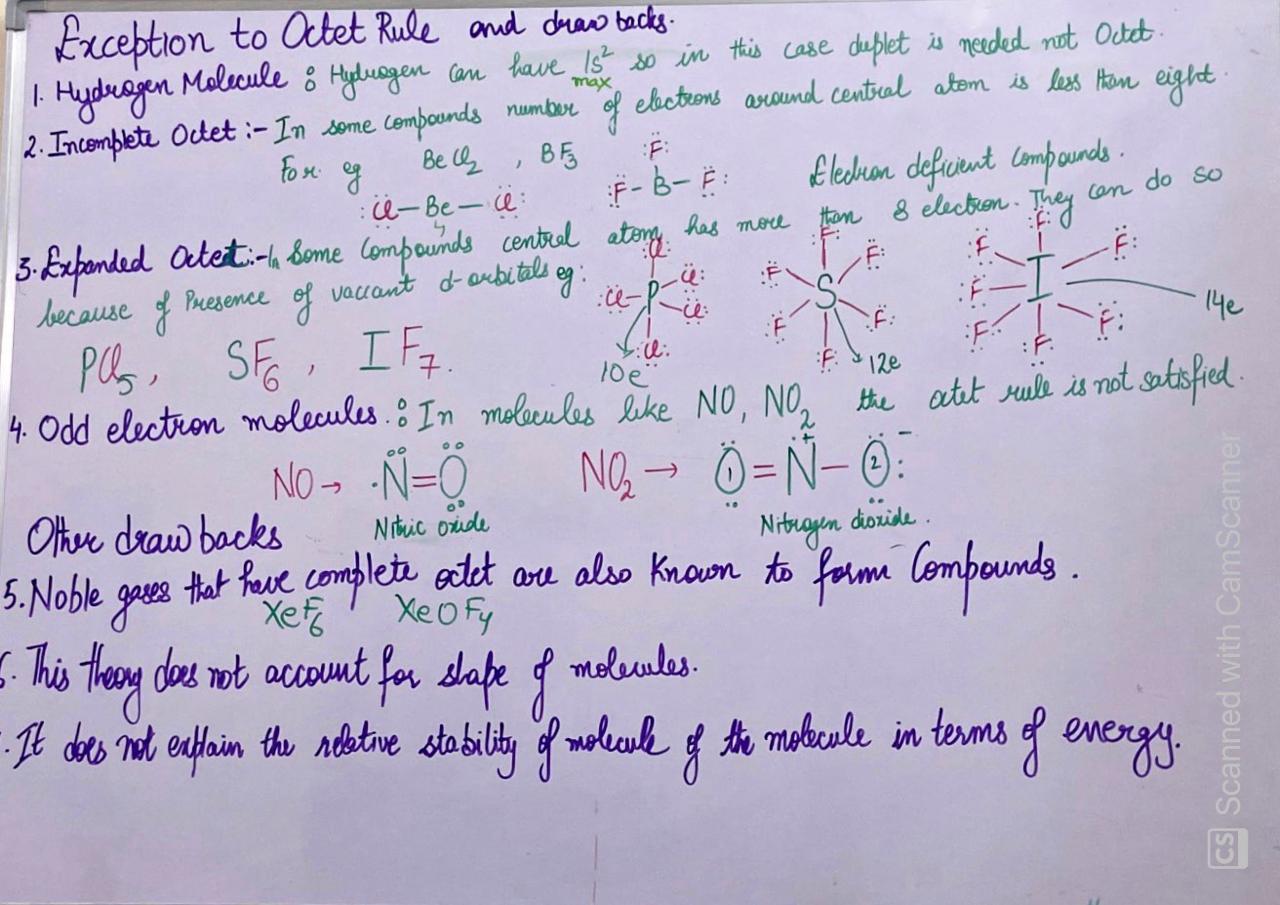 Exception to Octet Rule and draw backs.
1. Hydrogen Molecule : Hydrogen can have 1s² so in this case duplet is needed not Octet.
max
2. Incomplete Octet :- In some compounds number of electrons around central atom is less than eight.
For eg BeCl₂ , BF₃ Electron deficient Compounds.
:F:
:Cl—Be—Cl: :F—B—F:
3. Expanded Octet:- In Some Compounds central atom has more than 8 electron. They can do so
because of Presence of vaccant d-orbitals eg:
Cl Cl P Cl Cl Cl
F F F S F F F
F F F F I F F F
14e
PCl₅, SF₆, IF₇.
10e 12e
4. Odd electron molecules : In molecules like NO, NO₂ the octet rule is not satisfied.
NO → ·N=O NO₂ → O=N⁺—O:⁻
1 2
Nitric oxide Nitrogen dioxide.
Other draw backs
5. Noble gases that have complete octet are also known to form Compounds.
XeF₆ XeOF₄
6. This theory does not account for shape of molecules.
. It does not explain the relative stability of molecule of the molecule in terms of energy.
CS Scanned with CamScanner